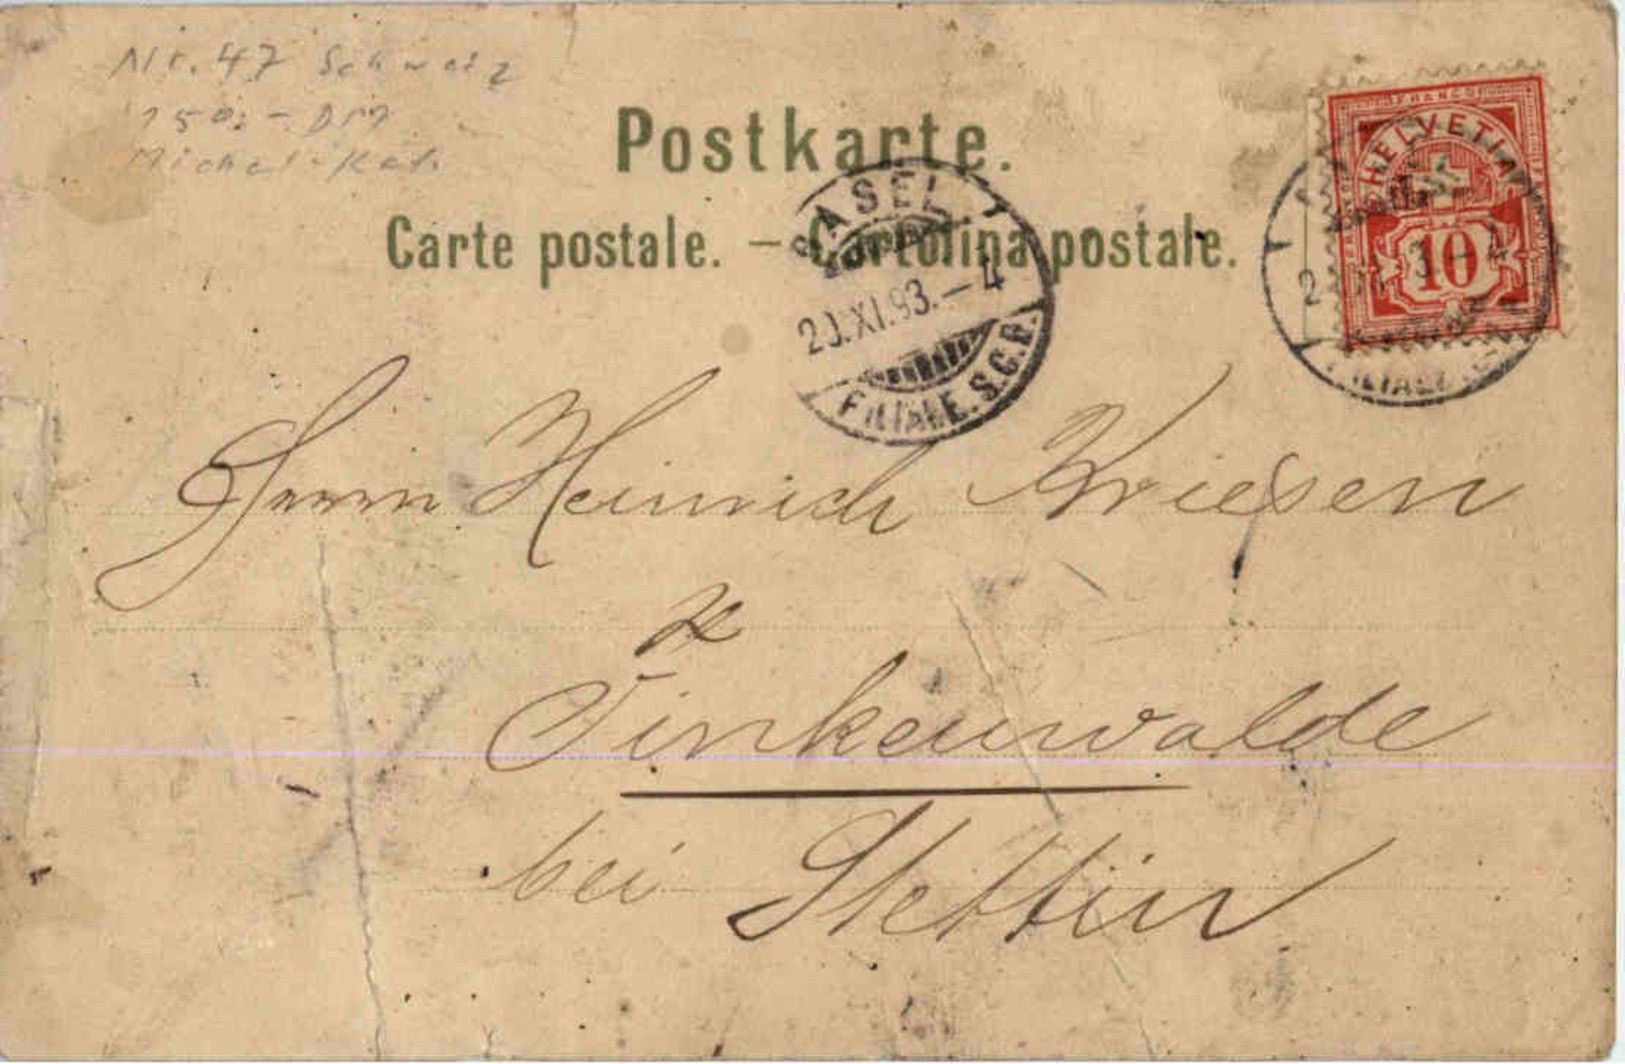 Nr. 47 Schweiz
150.- DM
Michel-Kat.
Postkarte.
Carte postale. — Cartolina postale.
BASEL
20.XI.93.-4
FILIALE.S.C.B.
FRANCO
HELVETIA
10
Herrn Heinrich Kriesen
Finkenwalde
bei Stettin